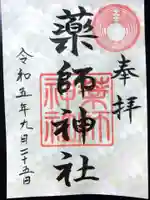 奉拝
薬師神社
薬師
神社
令和五年九月二十五日